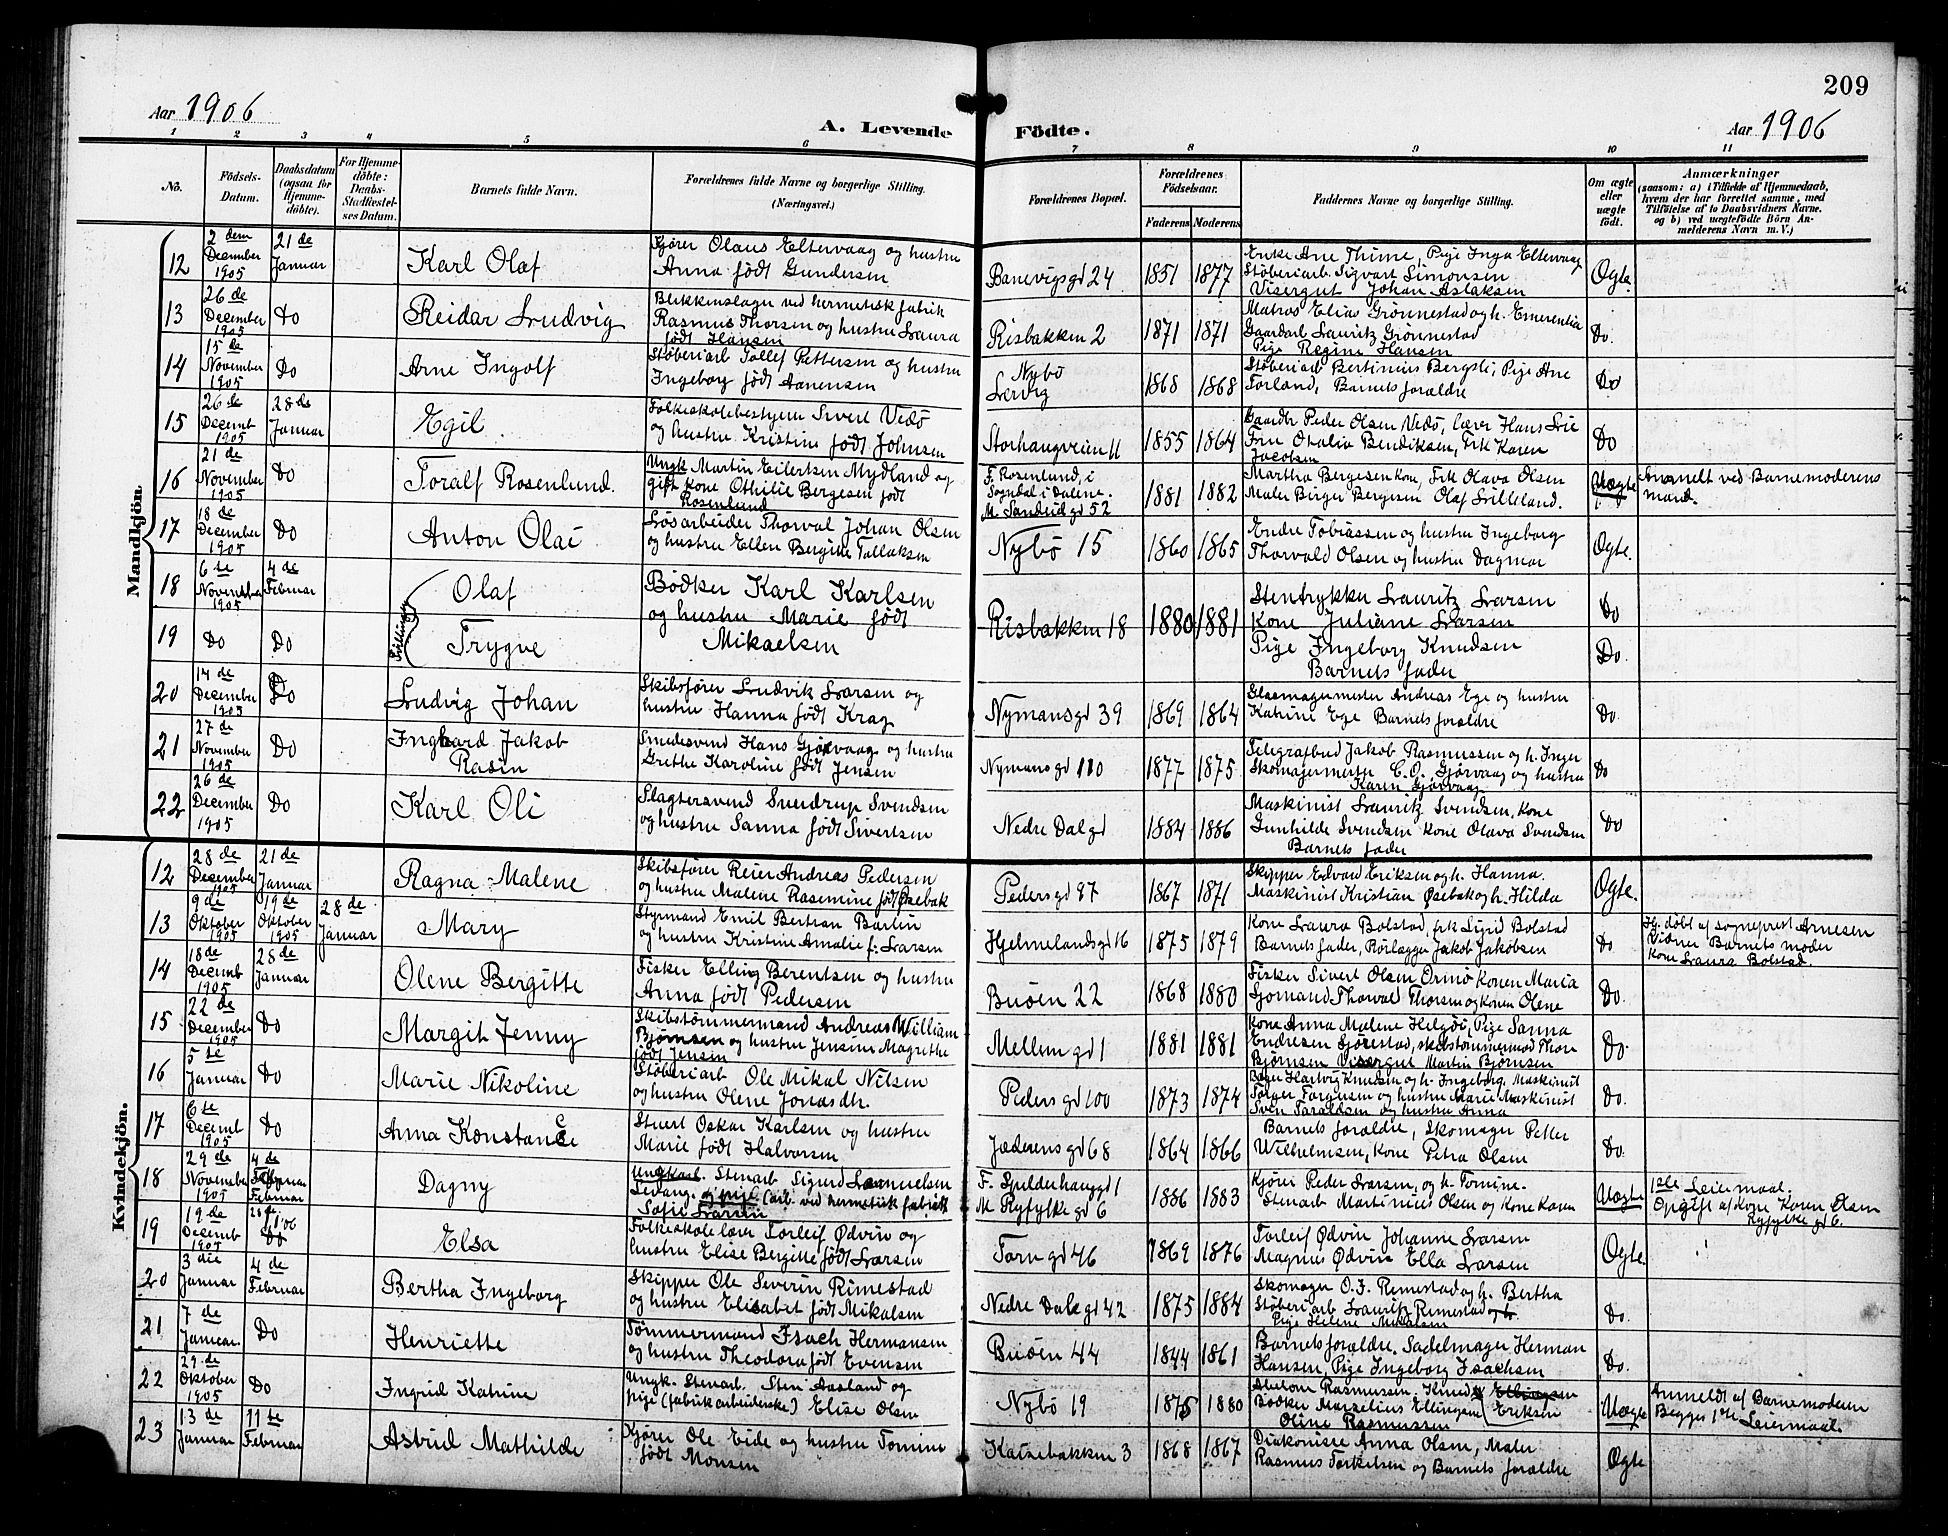 209
Aar 1906
A. Levende Födte.
Aar 1906
1 2 3 4 5 6 7 8 9 10 11
No.
Födsels-
Datum.
Daabsdatum
(ogsaa for
Hjemme-
döbte).
For Hjemme-
döbte:
Daabs-
Stadfæstel-
ses Datum.
Barnets fulde Navn.
Forældrenes fulde Navne og borgerlige Stilling.
(Næringsvei.)
Forældrenes Bopæl.
Forældrenes
Födselsaar.
Faderens Moderens
Faddernes Navne og borgerlige Stilling.
Om ægte
eller
uægte
födt.
Anmærkninger
(saasom: a) i Tilfælde af Hjemmedaab,
hvem der har forrettet samme, med
Tilföielse af to Daabsvidners Navne,
og b) ved uægtefödte Börn An-
melderens Navn m. V.)
Mandkjön.
12
2 den
December
1905
21 de
Januar
Karl Olaf
Kjører Olaus Eltervaag og hustru
Anna født Gundersen
Banevigsgd 24
1851 1877
Enke Ane Thime, Pige Inga Eltervaag
Støberiarb Sigvart Simonsen
Visergut Johan Aslaksen
Ægte
13
26 de
December
1905
Do
Reidar Ludvig
Blikkenslager ved hermetisk fabrik
Rasmus Thorsen og hustru Laura
født Hansen
Risbakken 2
1871 1871
Matros Elias Grønnestad og h. Emerentia
Gaardarb Lauritz Grønnestad
Pige Regine Hansen
Do.
14
15 de
November
1905
Do
Arne Ingolf
Støberiarb Tollef Pettersen og hustru
Ingeborg født Aanensen
Nybø
Lervig
1868 1868
Støberiarb Bertinius Bergsli, Pige Ane
Torland, Barnets forældre
Do
15
26 de
Decemb
1905
28 de
Januar
Egil
Folkeskolebestyrer Sivert Vedø
og hustru Kristine født Johnsen
Storhaugveien 11
1855 1864
Gaardbr Peder Olsen Vedø, Lærer Hans Lie
Fru Othalia Bendiksen, Frk Karen
Jacobsen
Do
16
21 de
November
1905
Do
Toralf Rosenlund.
Ungk Martin Eilertsen Mydland og
gift kone Othilie Bergesen født
Rosenlund
F. Rosenlund, i
Sogndal i Dalene.
M. Sandeid gd 52
1881 1882
Martha Bergesen kone, Frk Olava Olsen
Maler Birger Bergesen Olaf Lilleland.
Uægte
Anmelt ved Barnemoderens
mand.
17
18 de
December
1905
Do
Anton Olai
Løsarbeider Thorval Johan Olsen
og hustru Ellen Bergitte Tollaksen
Nybø 15
1860 1865
Endre Tobiassen og hustru Ingeborg
Thorvald Olsen og hustru Dagmar
Ægte.
18
6 te
November
1905
4 de
Februar
Tvillinger
Olaf
Bødker Karl Karlsen
og hustru Marie født
Mikaelsen
Risbakken 18
1880 1881
Stentrykker Lauritz Larsen
Kone Juliane Larsen
Pige Ingeborg Knudsen
Barnets fader
Do
19
Do
Do
Trygve
Do.
20
14 de
December
1905
Do
Ludvig Johan
Skibsfører Ludvik Larsen og
hustru Hanna født Krag
Nymansgd 39
1869 1864
Glasmagermester Andreas Ege og hustru
Katrine Ege Barnets forældre
Do.
21
27 de
November
1905
Do
Ingvard Jakob
Rasin
Smedesvend Hans Gjørvaag og hustru
Grethe Karoline født Jensen
Nymansgd 110
1877 1875
Telegrafbud Jakob Rasmussen og h. Inger
Skomagermester C. O. Gjørvaag og hustru
Karen Gjørvaag
Do
22
26 de
December
1905
Do
Karl Oli
Slagtersvend Sverdrup Svendsen
og hustru Sanna født Sivertsen
Nedre Dalgd
1884 1886
Maskinist Lauritz Svendsen, Kone
Gunhilde Svendsen Kone Olava Svendsen
Barnets fader
Do
Kvindekjön.
12
28 de
December
1905
21 de
Januar
Ragna Malene
Skibsfører Reier Andreas Pedersen
og hustru Malene Rasmine født Øsebak
Pedersgd 87
1867 1871
Skipper Edvard Eriksen og h. Hanna.
Maskinist Kristian Øsebak og h. Hilda
Ægte.
13
9 de
Oktober
1905
19 de
Oktober
1905
28 de
Januar
Mary
Styrmand Emil Bertran Bartin
og hustru Kristine Amalie f: Larsen
Hjelmelandsgd 16
1875 1879
Kone Laura Bolstad, frk Sigrid Bolstad
Barnets fader, Rørlægger Jakob Jakobsen
Do
Hj. døbt af sogneprest Arnesen
Vidner Barnets moder
Kone Laura Bolstad.
14
18 de
Decemb
1905
28 de
Januar
Olene Bergitte
Fisker Elling Berentsen og hustru
Anna født Pedersen
Buøen 22
1868 1880
Fisker Sivert Olsen Ormø konen Maria
Sjømand Thorval Thorsen og konen Olene
Do.
15
22 de
December
1905
Do
Margit Jenny
Skibstømmermand Andreas William
Bjørnsen og hustru Jensine Magrethe
født Jensen
Mellemgd 1
1881 1881
Kone Anna Malene Helgøi, Pige Sanna
Endresen Gjørestad, skibstømmermd Thore
Bjørnsen Visergut Martin Bjørnsen
Do.
16
5 te
Januar
Do
Marie Nikoline
Støberiarb Ole Mikal Nilsen
og hustru Olene Jonasdtr.
Pedersgd 100
1873 1874
Bager Hartvig Knudsen og h. Ingeborg. Maskinist
Torger Torgersen og hustru Marie Maskinist
Sven Taraldsen og hustru Anna
Do.
17
6 te
Decemb
1905
Do
Anna Konstance
Stuert Oskar Karlsen og hustru
Marie født Halvorsen
Jæderensgd 68
1864 1866
Barnets forældre, Skomager Petter
Wilhelmsen, Kone Petra Olsen
Do.
18
29 de
November
1905
4 de
Februar
Dagny
Ungkarl. Stenarb. Sigurd Samuelsen
Sevang. og pige (arb. ved hermetisk fabrik
Sofie Larsen
F. Gyldenhaugd 1
M Ryfylkegd 6
1886 1883
Kjører Peder Larsen og h. Tomine.
Stenarb Martinius Olsen og Kone Karen
Uægte
1ste Leiermaal.
Opgift af Kone Karen Olsen
Ryfylkegd 6.
19
19 de
Decemb
1905
Elsa
Folkeskolelærer Torleif Ødvin og
hustru Elise Bergitte født Larsen
Torngd 46
1869 1876
Torleif Ødvin Johanne Larsen
Magnus Ødvin Ella Larsen
Ægte.
20
3 die
Januar
4 de
Februar
Bertha Ingeborg
Skipper Ole Severin Rimestad
og hustru Elisabet født Mikalsen
Nedre Dalegd 42
1875 1884
Skomager O. J. Rimestad og h. Bertha
Støberiarb Lauritz Rimestad og h
Pige Helene Mikalsen
Do.
21
7 de
Januar
Do
Henriette
Tømmermand Isach Hermansen
og hustru Theodora født Evensen
Buøen 44
1844 1861
Barnets forældre. Sadelmager Herman
Hansen, Pige Ingeborg Isachsen
Do.
22
29 de
Oktober
1905
Do
Ingrid Katrine
Ungk. Stenarb. Sten Aasland og
pige (fabrikarbeiderske) Elise Olsen
Nybø 19
1875 1880
Abelone Rasmussen, Knud Ellingsen Eriksen
Bødker Marselius Ellingsen
Oline Rasmussen
Uægte
Anmeldt af Barnemoderen
Begges 1ste Leiermaal.
23
13 de
Januar
11 te
Februar
Astrid Mathilde
Kjører Ole Eide og hustru Tomine
født Monsen
Katsebakken 3
1868 1867
Diakonisse Anna Olsen, Maler
Rasmus Torkelsen og Barnets forældre
Ægte